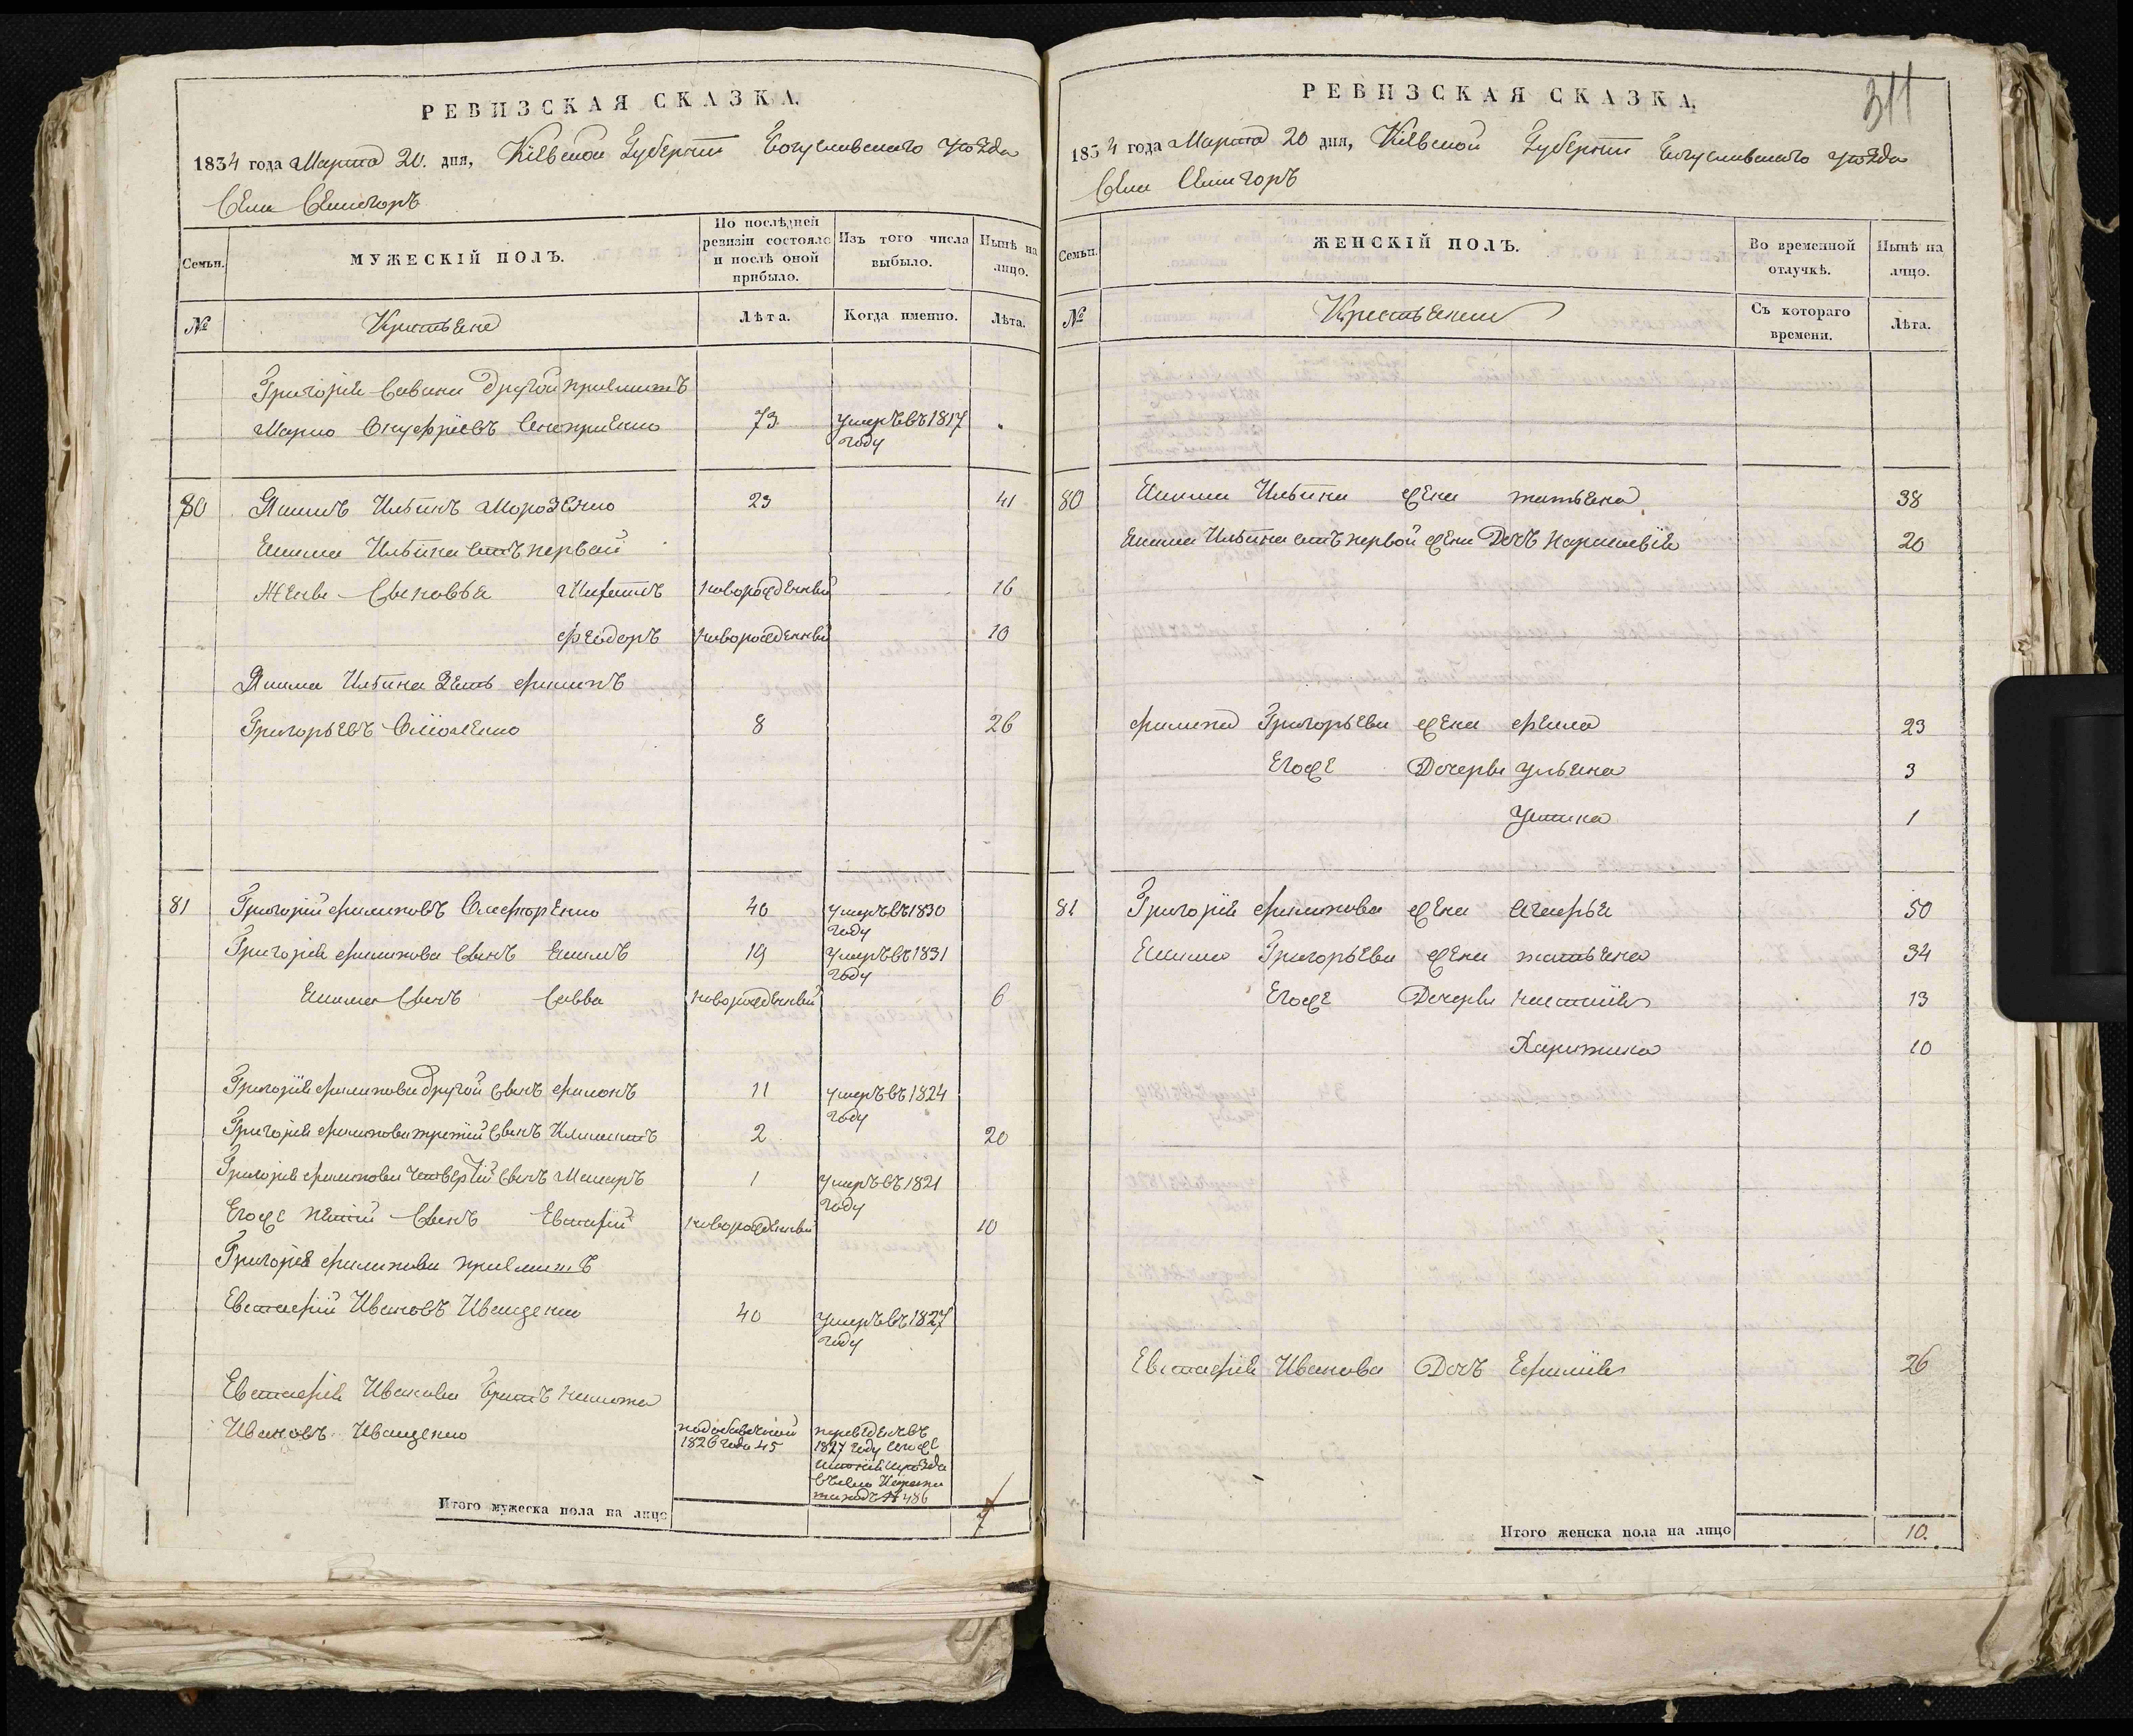 РЕВИЗСКАЯ СКАЗКА.
1834 года Марта 20. дня, Кіевской Губерніи Богуславскаго уѣзда
Села Семигоръ
Семьи.
МУЖЕСКІЙ ПОЛЪ.
По послѣдней ревизіи состояло и послѣ оной прибыло.
Изъ того числа выбыло.
Нынѣ на лицо.
№
Крестьяне
Лѣта.
Когда именно.
Лѣта.
Григорія Савина другой пріемишъ
Марко Онуфріевъ 73 умеръ въ 1817 году
80 Якимъ Ильинъ Морозенко 23 41
Екима Ильина отъ первой
Жены Сыновья Никита новорожденный 16
Феодоръ новорожденный 10
Якима Ильина Зять Филипъ
Григорьевъ 8 26
81 Григорій Филиповъ 40 умеръ въ 1830 году
Григорія Филипова Сынъ Екимъ 19 умеръ въ 1831 году
Екима Сынъ Савва новорожденный 6
Григорія Филипова другой Сынъ Филонъ 11 умеръ въ 1824 году
Григорія Филипова третій Сынъ Климентъ 2 20
Григорія Филипова четвертій Сынъ Макаръ 1 умеръ въ 1821 году
Егоже пятій Сынъ Евстафій новорожденный 10
Григорія Филипова пріемишъ
Евстафій Ивановъ Иващенко 40 умеръ въ 1827 году
Евстафія Иванова братъ
Ивановъ Иващенко 1826 года 45 переведенъ въ 1827 году № 486
Итого мужеска пола на лицо 7
РЕВИЗСКАЯ СКАЗКА. 311
1834 года Марта 20 дня, Кіевской Губерніи Богуславскаго уѣзда
Села Семигоръ
Семьи.
ЖЕНСКІЙ ПОЛЪ.
Во временной отлучкѣ.
Нынѣ на лицо.
№
Крестьянки
Съ котораго времени.
Лѣта.
80 Екима Ильина Жена татьяна 38
Екима Ильина отъ первой Жены Дочь Параскевія 20
Филипа Григорьева Жена Фекла 23
Егоже Дочеры Ульяна 3
Устина 1
81 Григорія Филипова Жена Агафья 50
Екима Григорьева Жена татьяна 34
Егоже Дочеры Настасія 13
Харитина 10
Евстафія Иванова Дочь Ефимія 26
Итого женска пола на лицо 10.